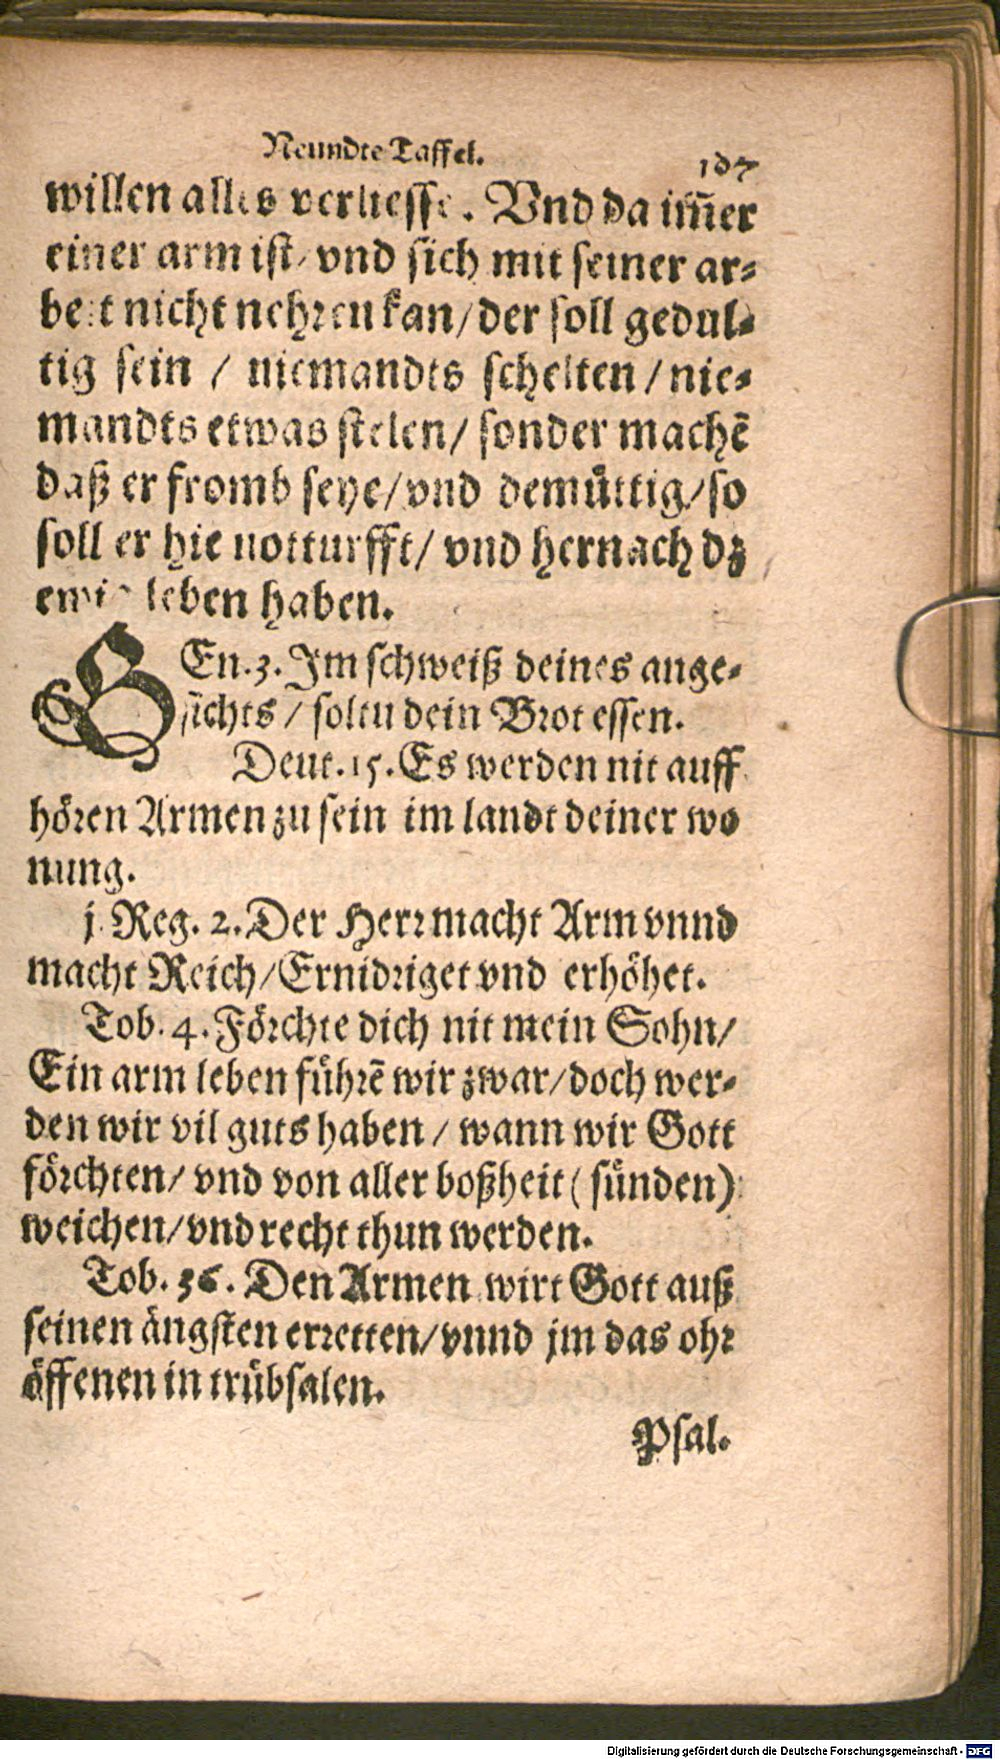 Neundte Taffel.
107
willen alles verliesse. Vnd da im̄er
einer arm ist/ vnd sich mit seiner ar⸗
beit nicht nehren kan/ der soll gedul⸗
tig sein / niemandts schelten / nie⸗
mandts etwas stelen/ sonder machē
daß er fromb seye/ vnd demuͤttig/ so
soll er hie notturfft/ vnd hernach dz
ewig leben haben.
GEn. 3. Im schweiß deines ange⸗
sichts / soltu dein Brot essen.
Deut. 15. Es werden nit auff
hoͤren Armen zu sein im landt deiner wo
nung.
j. Reg. 2. Der Herr macht Arm vnnd
macht Reich/ Ernidriget vnd erhoͤhet.
Tob. 4. Foͤrchte dich nit mein Sohn/
Ein arm leben fuͤhrē wir zwar/ doch wer⸗
den wir vil guts haben / wann wir Gott
foͤrchten/ vnd von aller boßheit ( suͤnden)
weichen/ vnd recht thun werden.
Tob. 36. Den Armen wirt Gott auß
seinen aͤngsten erretten/ vnnd jm das ohr
oͤffenen in truͤbsalen.
Psal.
Digitalisierung gefördert durch die Deutsche Forschungsgemeinschaft - DFG